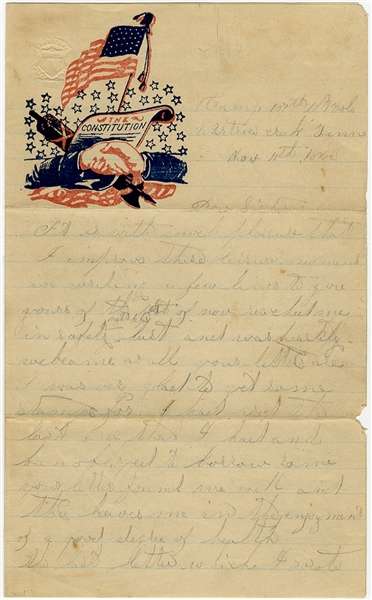 THE
CONSTITUTION
Camp
Creek Tenn
Nov
Dear Sister
It is with much pleasure that
I improve these leisure moments
in writing a few lines to you
yours of the of nov reached me
in safety last and was heartily
as all your letters are
I was very glad to get some
stamps for I had used the
last one that I had and
to borrow some
your letter found me well and
this leaves me in the enjoyment
of a good degree of health
the last letter which I wrote